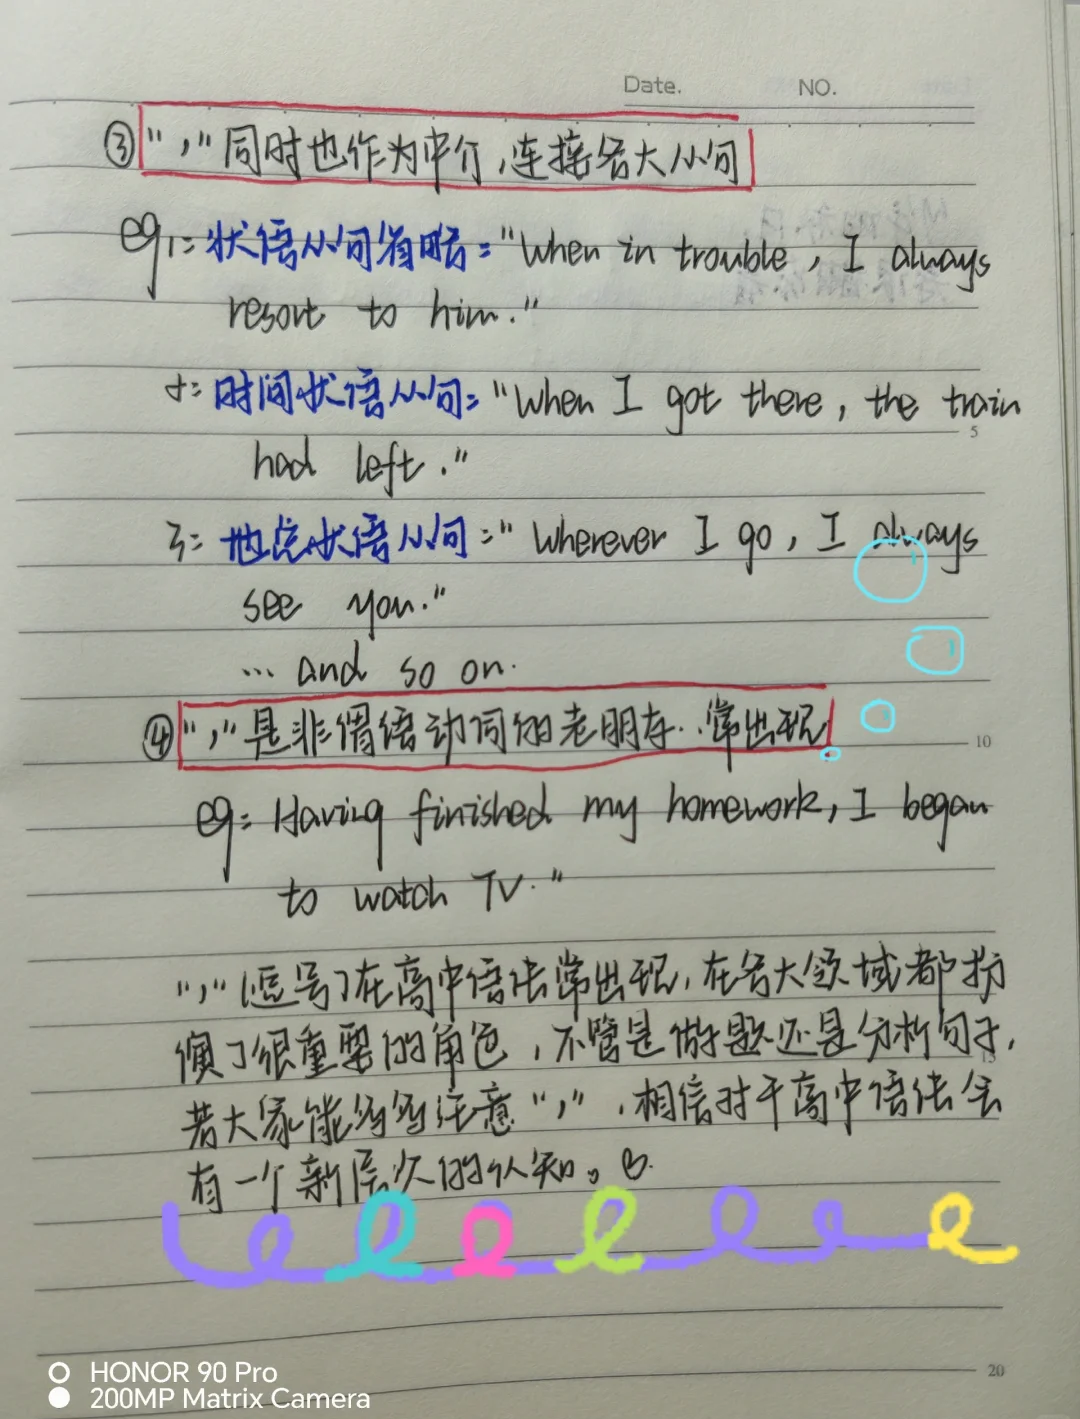 Date. NO.
③ "，"同时也作为中介，连接各大小句
eg1: 状语从句省略: "When in trouble, I always
resort to him."
2: 时间状语从句: "When I got there, the train
had left."
5
3: 地点状语从句: "Wherever I go, I always
see you."
... and so on.
④ "，"是非谓语动词的老朋友..常出现!
10
eg: Having finished my homework, I began
to watch TV."
"，"(逗号)在高中语法常出现，在各大领域都扮
演了很重要的角色，不管是做题还是分析句子，
15
若大家能多多注意"，"，相信对于高中语法会
有一个新层次的认知。
20
HONOR 90 Pro
200MP Matrix Camera